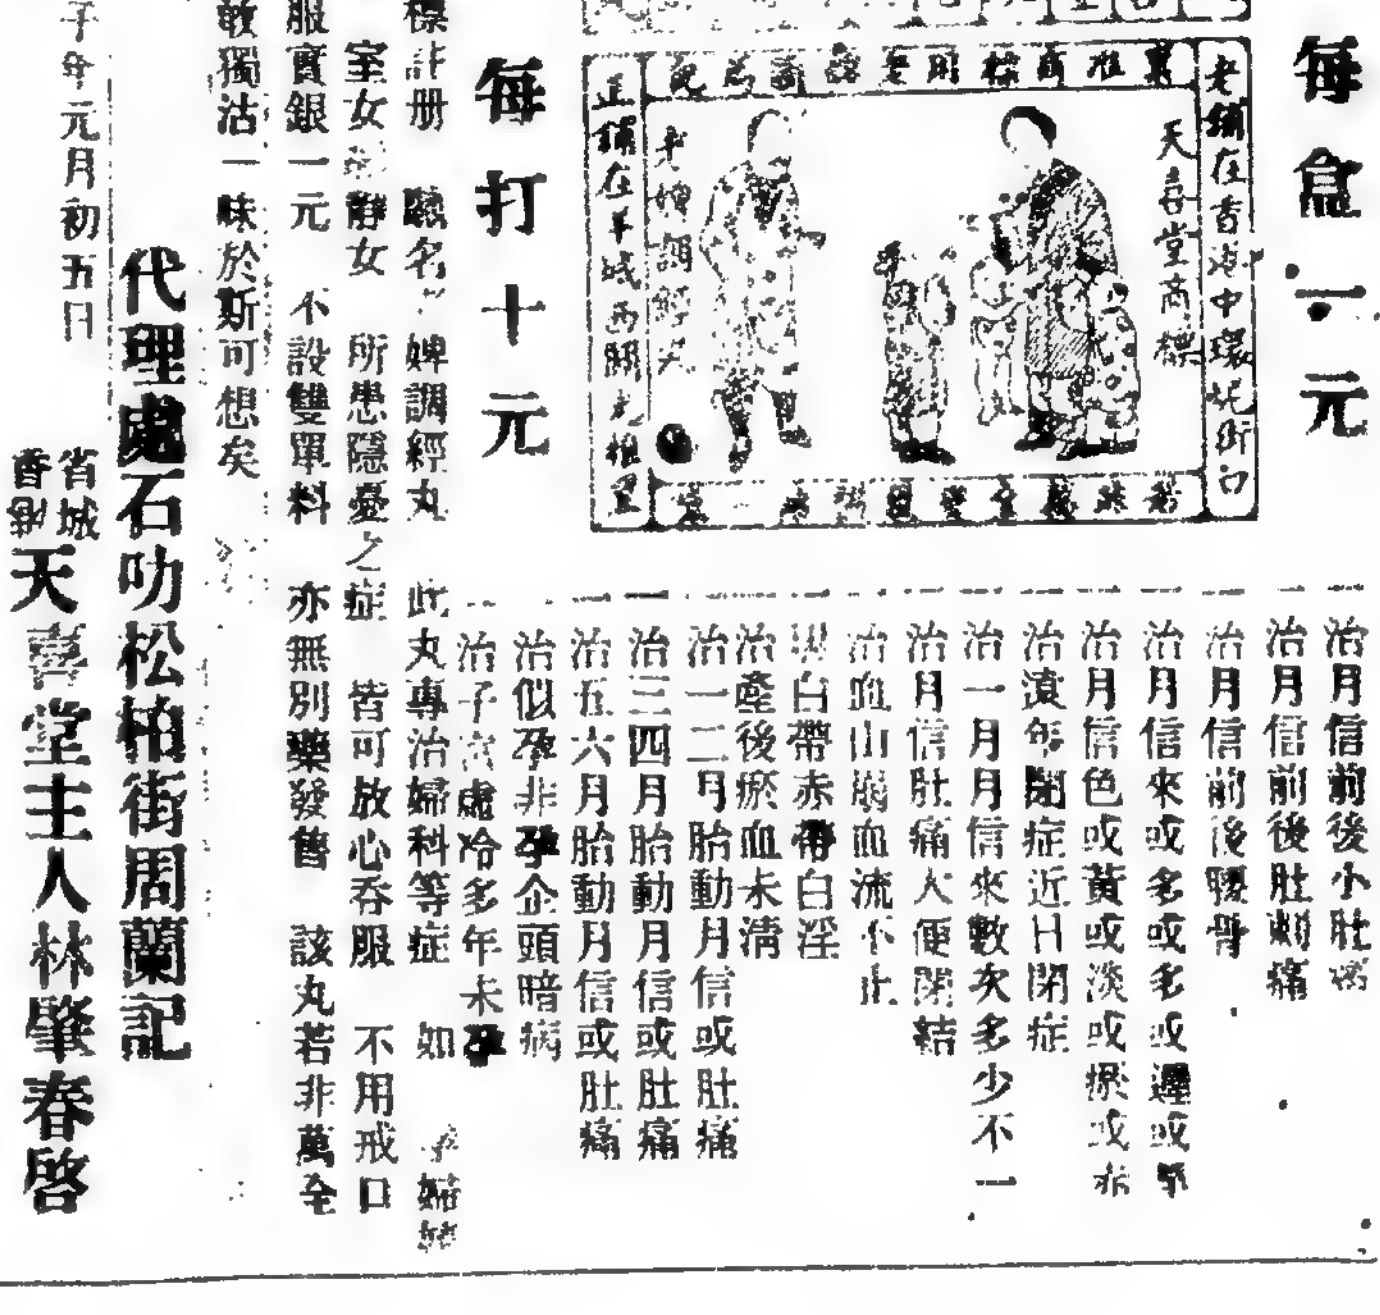 每盒一元
老鋪在香港中環坭街口
天喜堂商標
正鋪在羊城西關
調經丸
每打十元
一治月信前後小肚
一治月信前後肚刺痛
一治月信前後腰骨
一治月信來或多或多或遲或早
一治月信色或黃或淡或瘀或赤
一治遠年閉症近日閉症
一治一月月信來數次多少不一
一治月信肚痛大便閉結
一治血山崩血流不止
一 白帶赤帶白淫
一治產後瘀血未清
一治一二月胎動月信或肚痛
一治三四月胎動月信或肚痛
一治五六月胎動月信或肚痛
一治似孕非孕企頭暗病
一治子宮虛冷多年未孕
標註册 名 婢調經丸 此丸專治婦科等症 如 孕婦
室女 靜女 所患隱憂之症 皆可放心吞服 不用戒口
服實銀一元 不設雙單料 亦無別藥發售 該丸若非萬全
敢獨沽一味於斯可想矣
代理處石叻松柏街周蘭記
子年元月初五日
省城
香港
天喜堂主人林肇春啓